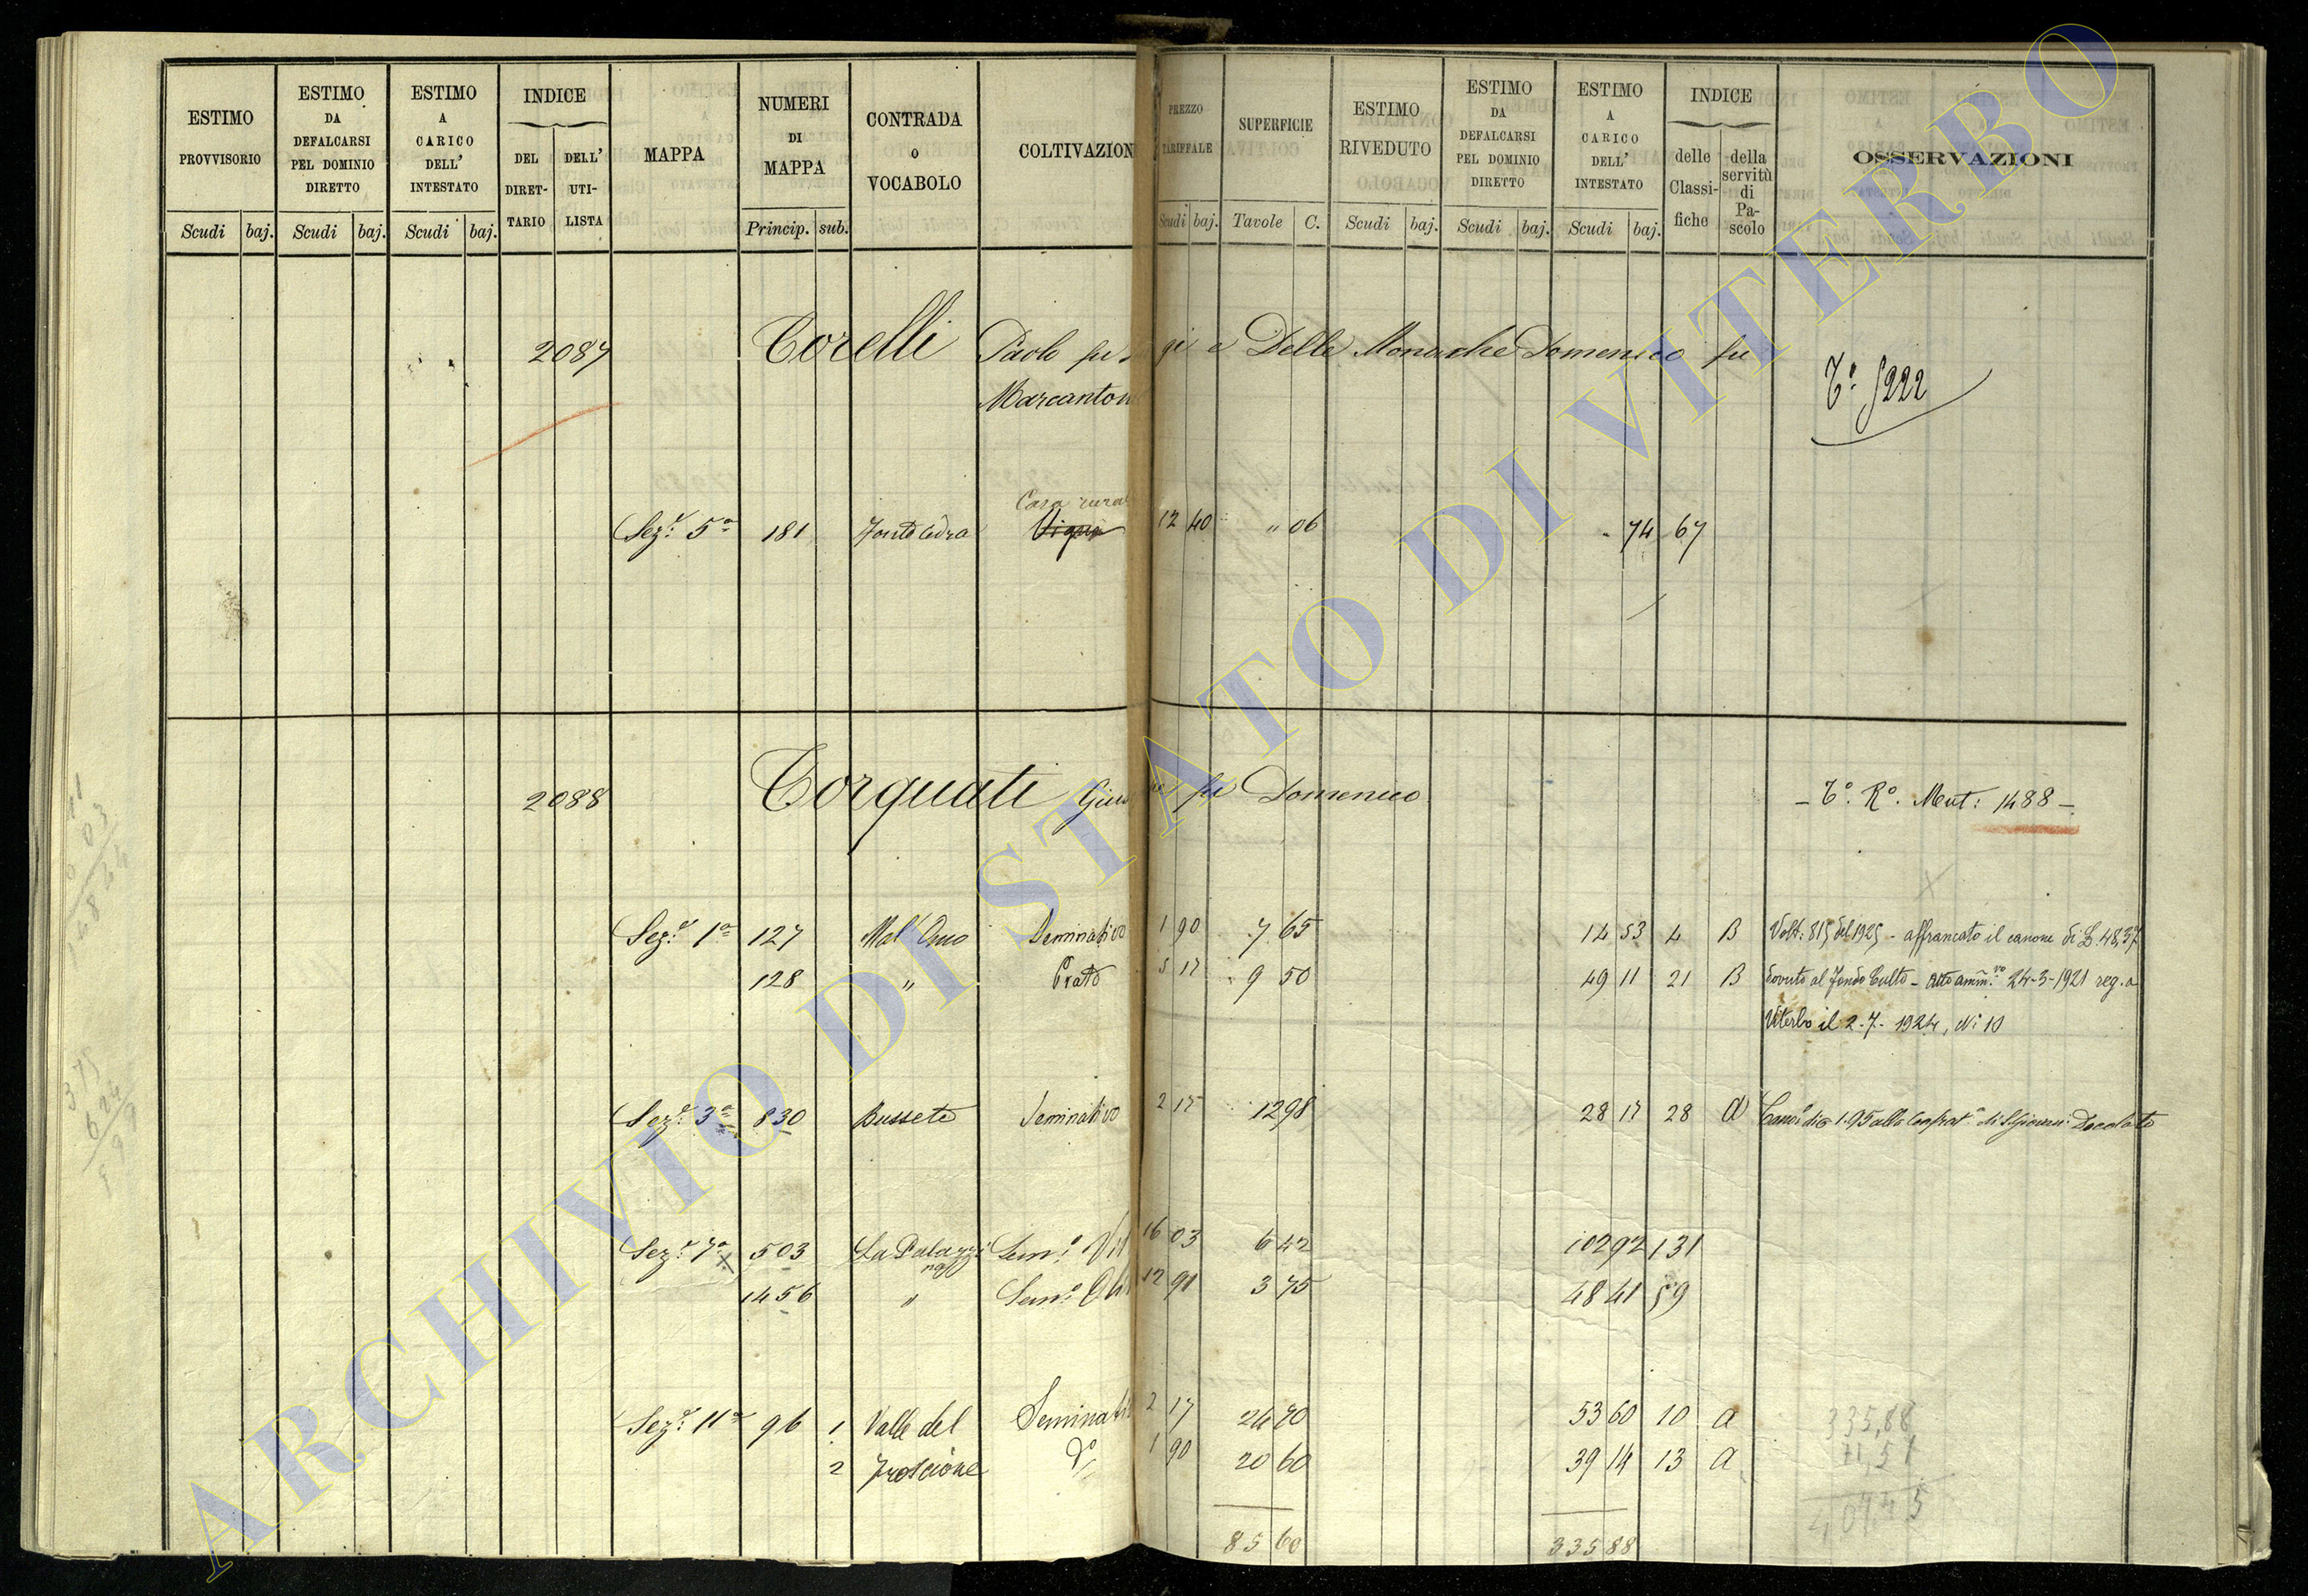 ESTIMO PROVVISORIO
ESTIMO DA DEFALCARSI PEL DOMINIO DIRETTO
ESTIMO A CARICO DELL' INTESTATO
INDICE
DEL DIRETTARIO
DELL' UTILISTA
MAPPA
NUMERI DI MAPPA
CONTRADA O VOCABOLO
COLTIVAZION
PREZZO TARIFFALE
SUPERFICIE
ESTIMO RIVEDUTO
ESTIMO DA DEFALCARSI PEL DOMINIO DIRETTO
ESTIMO A CARICO DELL' INTESTATO
INDICE
delle Classifiche
della servitù di Pascolo
OSSERVAZIONI
Scudi baj. Scudi baj. Scudi baj. Princip. sub. Scudi baj. Tavole C. Scudi baj. Scudi baj. Scudi baj.
2087 Torelli Paolo fu gi e Delle Monache Domenico fu
Marcanton
T.° 5222
Casa rural
Sez.e 5a 181 Vigna 12 40 " 06 74 67
2088 Torquati Gius fu Domenico
– T.° R.° Mut: 1488 –
Sez.e 1a 127 Mal' Omo Seminativo 1 90 7 65 14 53 4 B Volt: 815 del 1925 - affrancato il canone di L. 48,37
128 " Prato 5 17 9 50 49 11 21 B dovuto al Fondo Culto - Atto amm.vo 24-3-1921 reg. a
Viterbo il 2-7-1924, N: 10
Sez.e 3a 830 Bussete Seminativo 2 17 12 98 28 17 28 A 1.95 alla Confrat.a di S. Giovanni Decollato
Sez.e 7a 503 La Palazzina Sem.o Vit 16 03 6 42 102 92 131
1456 " Sem.o Oli 12 91 3 75 48 41 59
Sez.e 11a 96 1 Valle del Seminati 2 17 24 70 53 60 10 A
2 Troscione d.o 1 90 20 60 39 14 13 A
85 60 335 88
335,88
71,51
407,45
ARCHIVIO DI STATO DI VITERBO